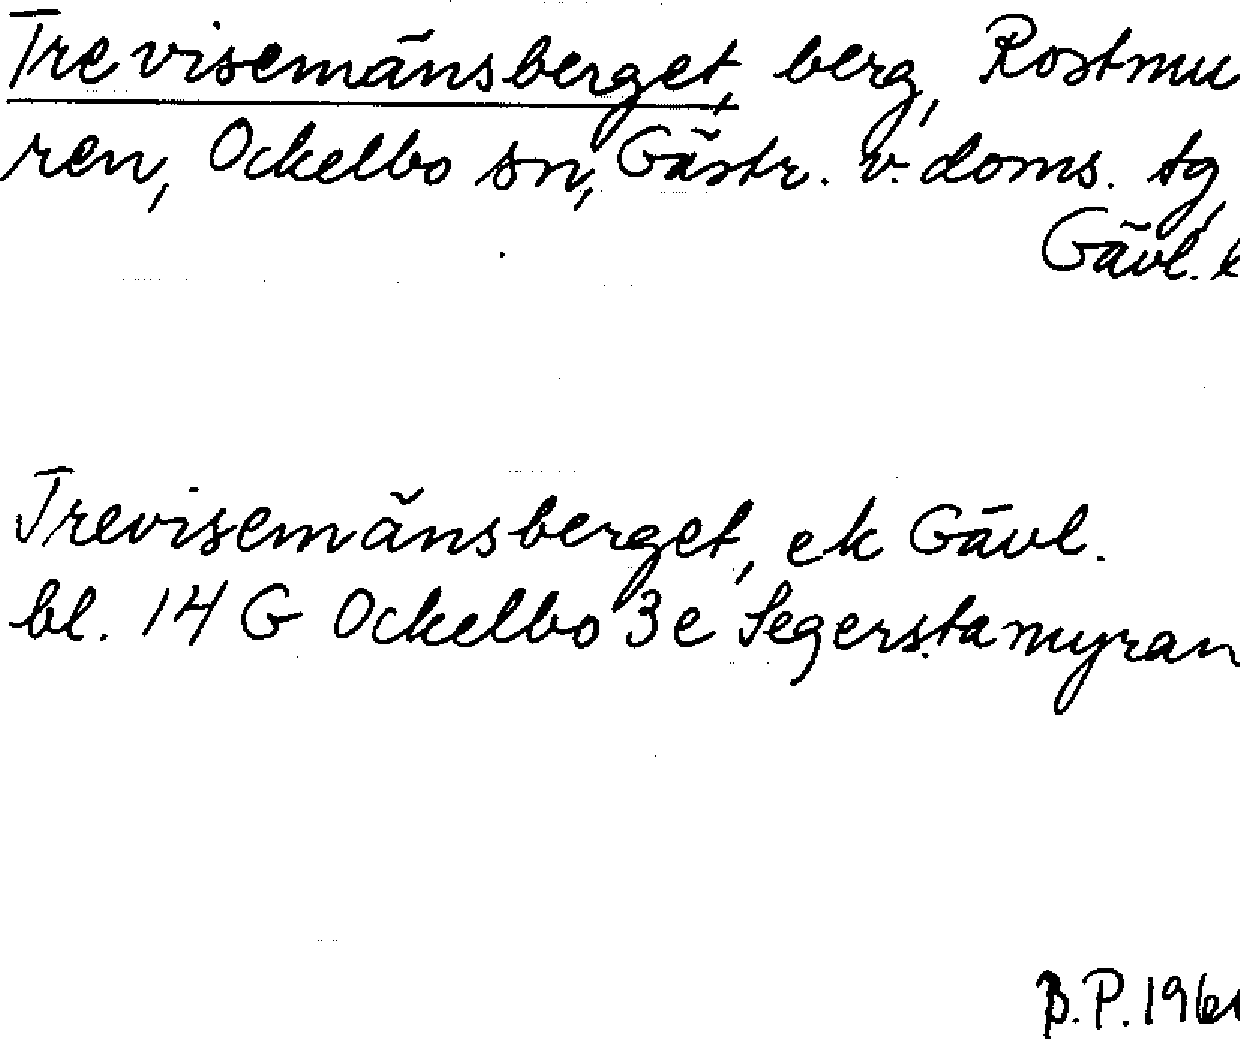 Trevisemänsberget, berg, Rostmu
ren, Ockelbo sn, Gästr. v. doms. tg,
Gävl.
Trevisemänsberget, ek Gävl.
bl. 14 G Ockelbo 3e Segerstamyran
B.P.